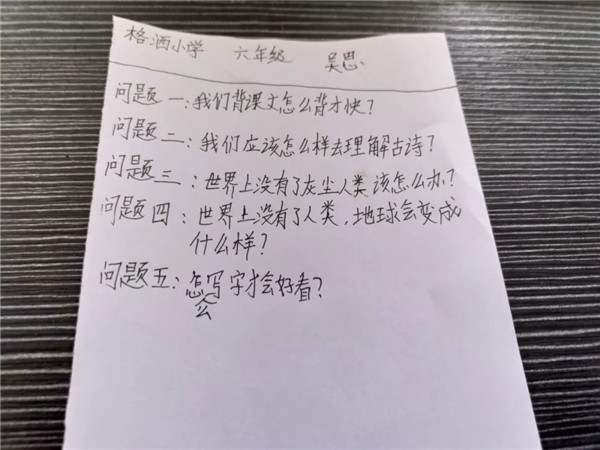 格洒小学 六年级 吴思
问题一:我们背课文怎么背才快?
问题二:我们应该怎么样去理解古诗?
问题三:世界上没有了灰尘人类该怎么办?
问题四:世界上没有了人类,地球会变成
什么样?
问题五:怎么写字才会好看?